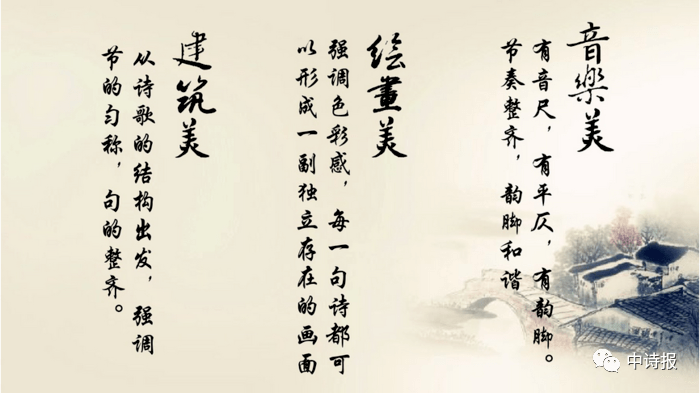 音樂美
有音尺，有平仄，有韵脚。
节奏整齐，韵脚和谐
绘畫美
强调色彩感，每一句诗都可
以形成一副独立存在的画面
建筑美
从诗歌的结构出发，强调
节的匀称，句的整齐。
中诗报